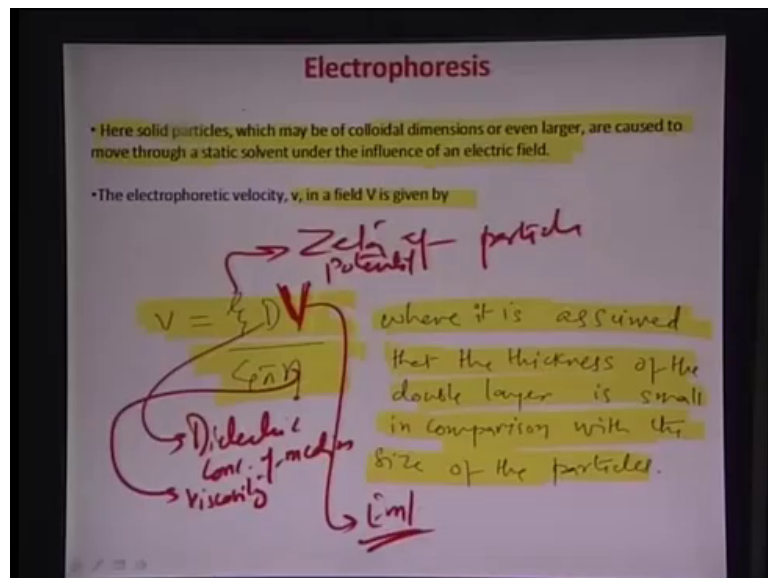 Electrophoresis
• Here solid particles, which may be of colloidal dimensions or even larger, are caused to
move through a static solvent under the influence of an electric field.
•The electrophoretic velocity, v, in a field V is given by
Zeta of particle
potential
v = ξ D V
4πη
where it is assumed
that the thickness of the
double layer is small
in comparison with the
size of the particles.
Dielectric
of medium
Viscosity